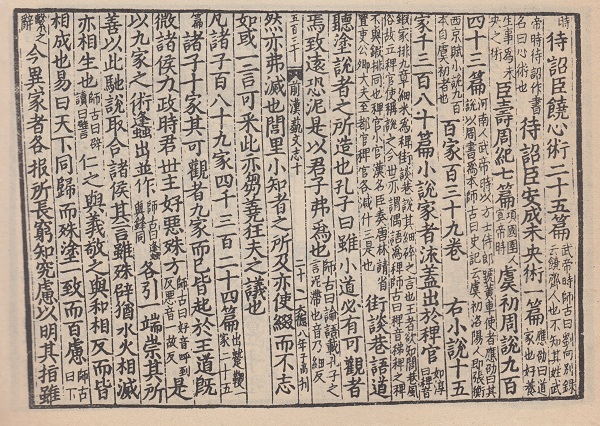 時待詔臣饒心術二十五篇武帝時師古曰劉向別錄云饒齊人也不知其姓武
帝時待詔作書名曰心術也待詔臣安成未央術一篇應劭曰道家也好養
生事為未央之術臣壽周紀七篇項國圉人宣帝時虞初周說九百
四十三篇河南人武帝時以方士侍郎號黃車使者應劭曰其說以周書為本師古曰史記云虞初洛陽人即張衡
西京賦小說九百本自虞初者也百家百三十九卷右小說十五
家千三百八十篇小說家者流蓋出於稗官如淳曰稗音
鍛家排九章細米為稗街談巷說其細碎之言也王者欲知閭巷風俗故立稗官使稱說之今世亦謂偶語為稗師古曰稗音稊稗之稗
不與鍛排同也稗官小官漢名臣奏唐林請省置吏公卿大夫至都官稗官各減什三是也街談巷語道
聽塗說者之所造也孔子曰雖小道必有可觀者
焉致遠恐泥是以君子弗為也師古曰論語載孔子之言泥滯也音乃細反
五百三十 前漢藝文志十 二十八 大德八年子高刊
然亦弗滅也閭里小知者之所及亦使綴而不忘
如或一言可采此亦芻蕘狂夫之議也
凡諸子百八十九家四千三百二十四篇出蹵鞠一家二十五
篇諸子十家其可觀者九家而已皆起於王道既
微諸侯力政時君世主好惡殊方師古曰好音呼到反惡音一故反是
以九家之術蠭出並作師古曰蠭與鋒同各引一端崇其所
善以此馳說取合諸侯其言雖殊辟猶水火相滅
亦相生也師古曰辟讀曰譬仁之與義敬之與和相反而皆
相成也易曰天下同歸而殊塗一致而百慮師古曰下
繫之辭今異家者各推所長窮知究慮以明其指雖